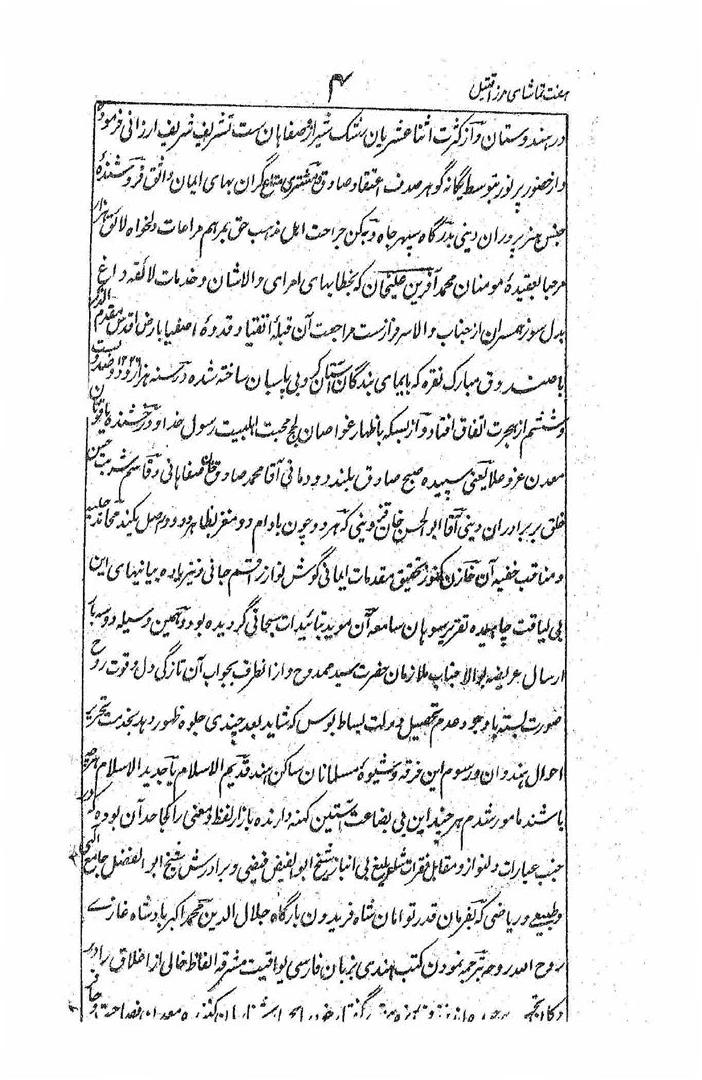 هفت تماشای مرزا قتیل
۴
در هندوستان و از کثرت اثنا عشریان رشک شیراز و صفاهان ست تشریف شریف ارزانی فرموده
و از حضور پر نور بتوسط یگانه گوهر صدف اعتقاد صادق مشتری متاع گران بهای ایمان واثق فروشندهٔ
جنس هنر پروران دینی بدرگاه سپهر جاه و به کن جراحت اهل مذهب حق بمرهم مراعات دلخواه لائق هزار
مرحبا بعقیدهٔ مومنان محمد آفرین علیخان که بخطابهای امرای والاشان و خدمات لائقه داغ
بدل سوز همسران از جناب والا سرفراز ست مراجعت آن قبلهٔ اتقیا و قدوهٔ اصفیا بارض اقدس مقدم الذکر
با صندوق مبارک نقره که بایمای بندگان آستان کروبی پاسبان ساخته شده در سنه ۱۲۲۶ هزار و دو صد و بست
و ششم از هجرت اتفاق افتاد و از بسکه باظهار غواصان لجهٔ محبت اهلبیت رسول خدا و درخشنده یاقوتان
معدن عز و علا یعنی سپیده صبح صادق بلند دودمانی آقا محمد صادق خان صفاهانی و قاسم شربت حسن
خلق بر برادران دینی آقا ابوالحسن خان قزوینی که هر دو چون بادام دو مغز بظاهر دو و در اصل یکند محامد جلیه
و مناقب خفیه آن خازن کنوز تحقیق مقدمات ایمانی گوش نواز راقم جانی و نیز یاده بیانیهای این
بی لیاقت سامعه آن موید بتائیدات سبحانی گردیده بود و بهمین وسیله دو سه بار
ارسال عرایض بوالا جناب ملازمان حضرت سید ممدوح و از آنطرف بجواب آن تازگی دل و قوت روح
صورت بسته با وجود عدم تحصیل دولت بساط بوس که شاید بعد چندی جلوه ظهور دهد بخدمت تحریر
احوال هندوان و رسوم این فرقه و شیوهٔ مسلمانان ساکن هند قدیم الاسلام یا جدید الاسلام هرچه
باشند مامور شدم هر چند این بی بضاعت آستین کهنه دارنده بازار لفظ و معنی را کجا حد آن بود که در
جنب عبارات دلنواز و مقابل فقرات بلیغ بی انباز شیخ ابوالفیض فیضی و برادرش شیخ ابوالفضل جامع الهی
و طبیعی و ریاضی که بفرمان قدر توامان شاه فریدون بارگاه جلال الدین محمد اکبر بادشاه غازے
روح الله روحه بترجمه نمودن کتب هندی بزبان فارسی یواقیت مشرقه الفاظ خالی از اغلاق را در